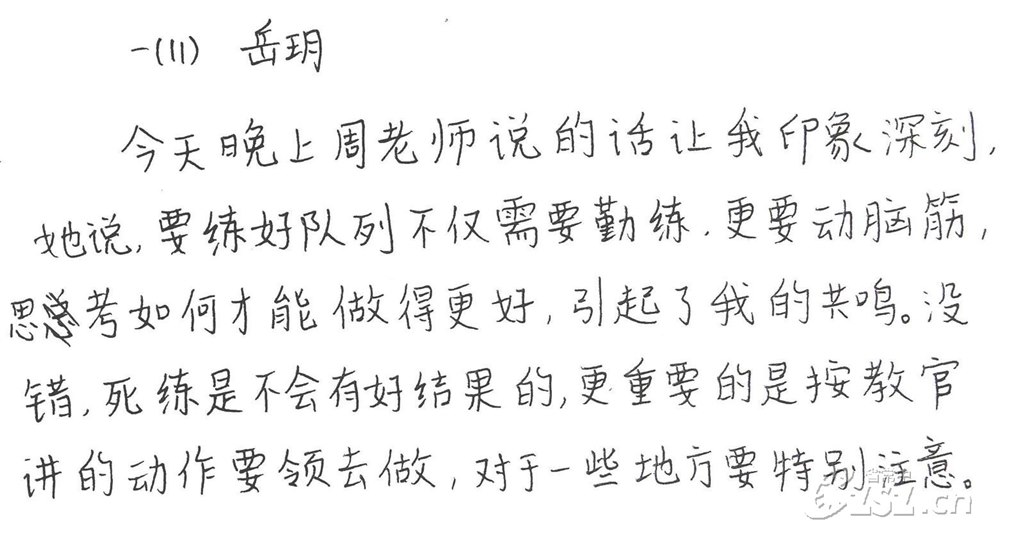 一(11) 岳玥
今天晚上周老师说的话让我印象深刻,
她说,要练好队列不仅需要勤练.更要动脑筋,
思考如何才能做得更好,引起了我的共鸣。没
错,死练是不会有好结果的,更重要的是按教官
讲的动作要领去做,对于一些地方要特别注意。
.cn